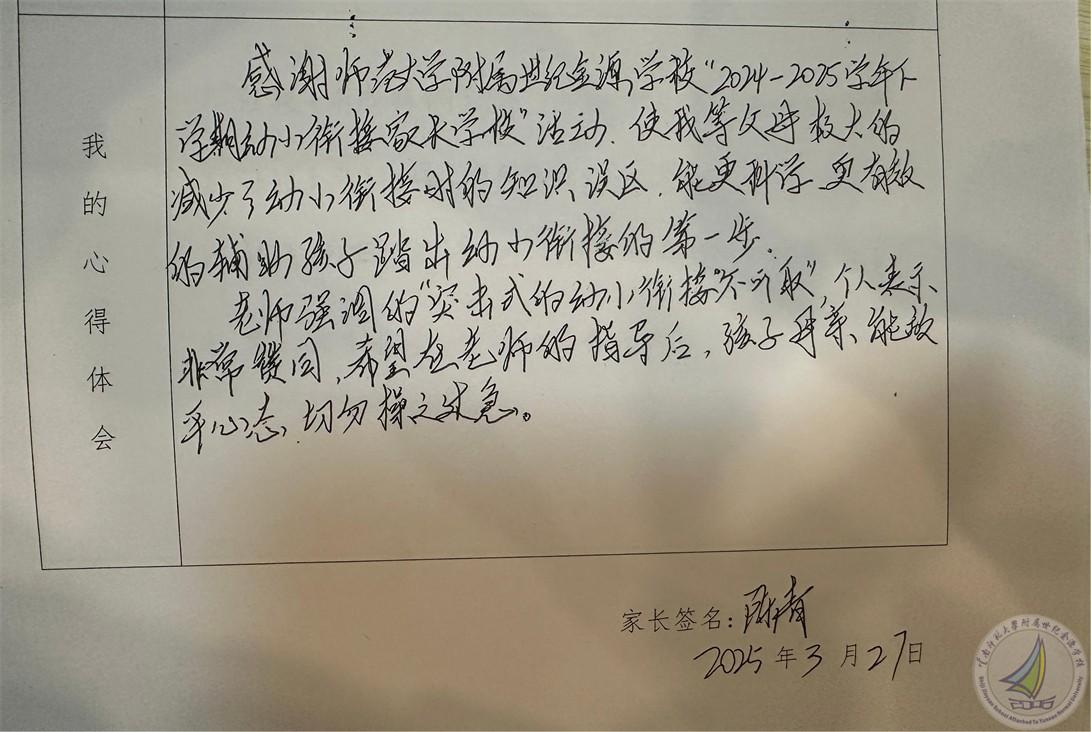 我的心得体会
感谢师范大学附属世纪金源学校“2024-2025学年下
学期幼小衔接家长学校”活动.使我等父母极大的
减少了幼小衔接时的知识误区.能更科学更有效
的辅助孩子踏出幼小衔接的第一步.
老师强调的“突击式的幼小衔接”不可取”,个人表示
非常赞同,希望在老师的指导后,孩子母亲能放
平心态.切勿操之过急。
家长签名:
2025年3月27日
云南师范大学附属世纪金源学校
Shiji Jinyuan School Attached To Yunnan Normal University